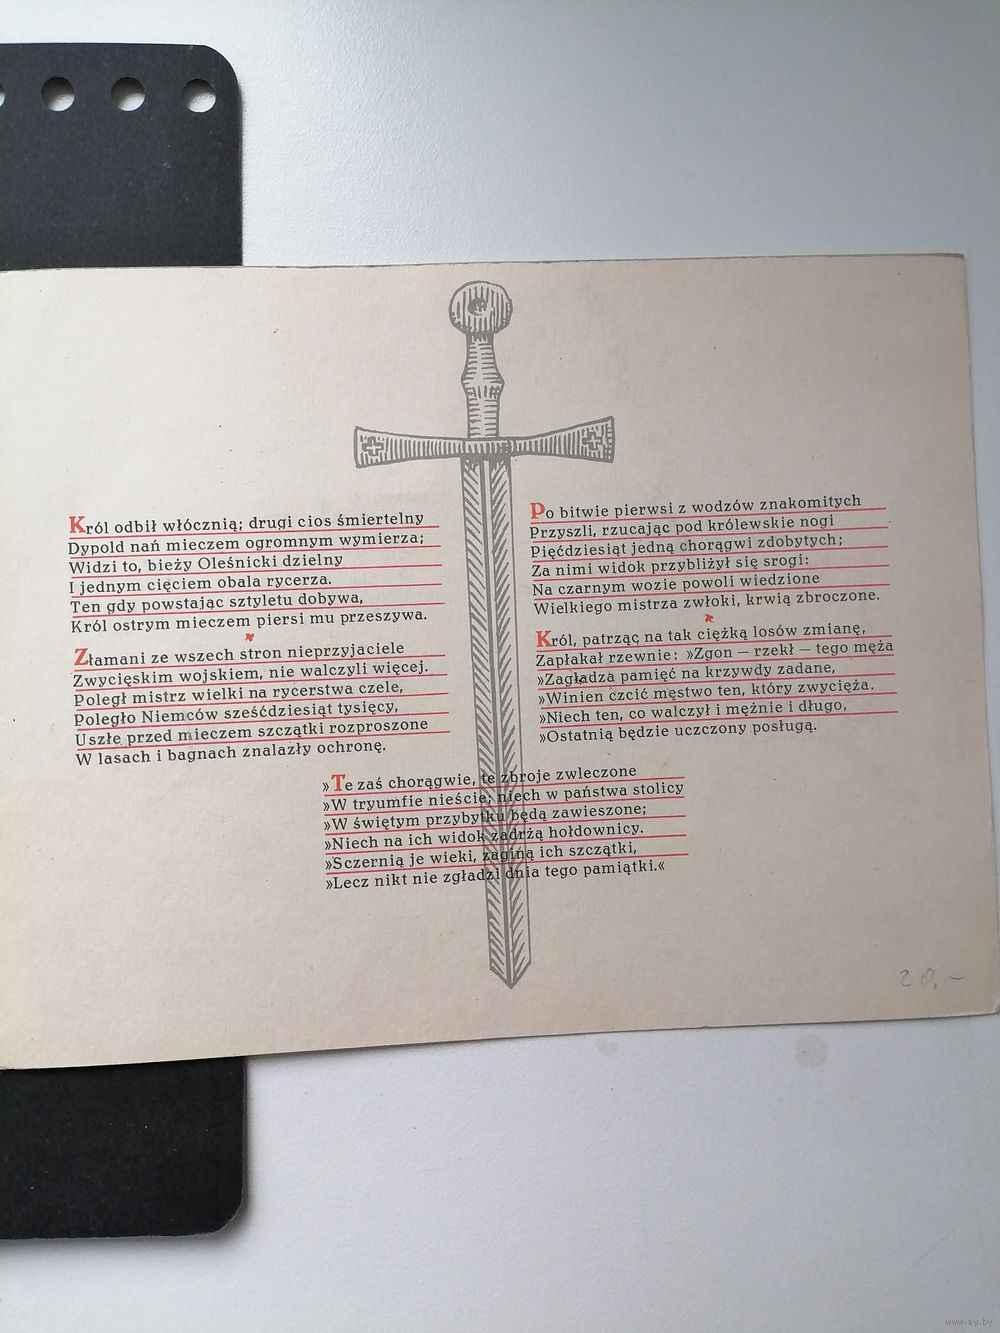 Król odbił włócznią; drugi cios śmiertelny
Dypold nań mieczem ogromnym wymierza;
Widzi to, bieży Oleśnicki dzielny
I jednym cięciem obala rycerza.
Ten gdy powstając sztyletu dobywa,
Król ostrym mieczem piersi mu przeszywa.
Złamani ze wszech stron nieprzyjaciele
Zwycięskim wojskiem, nie walczyli więcej.
Poległ mistrz wielki na rycerstwa czele,
Poległo Niemców sześćdziesiąt tysięcy,
Uszłe przed mieczem szczątki rozproszone
W lasach i bagnach znalazły ochronę.
Po bitwie pierwsi z wodzów znakomitych
Przyszli, rzucając pod królewskie nogi
Pięćdziesiąt jedną chorągwi zdobytych;
Za nimi widok przybliżył się srogi:
Na czarnym wozie powoli wiedzione
Wielkiego mistrza zwłoki, krwią zbroczone.
Król, patrząc na tak ciężką losów zmianę,
Zapłakał rzewnie: »Zgon — rzekł — tego męża
»Zagładza pamięć na krzywdy zadane,
»Winien czcić męstwo ten, który zwycięża.
»Niech ten, co walczył i mężnie i długo,
»Ostatnią będzie uczczony posługą.
»Te zaś chorągwie, te zbroje zwleczone
»W tryumfie nieście; niech w państwa stolicy
»W świętym przybytku będą zawieszone;
»Niech na ich widok zadrżą hołdownicy.
»Sczernią je wieki, zaginą ich szczątki,
»Lecz nikt nie zgładzi dnia tego pamiątki.«
20,-
www.ay.by